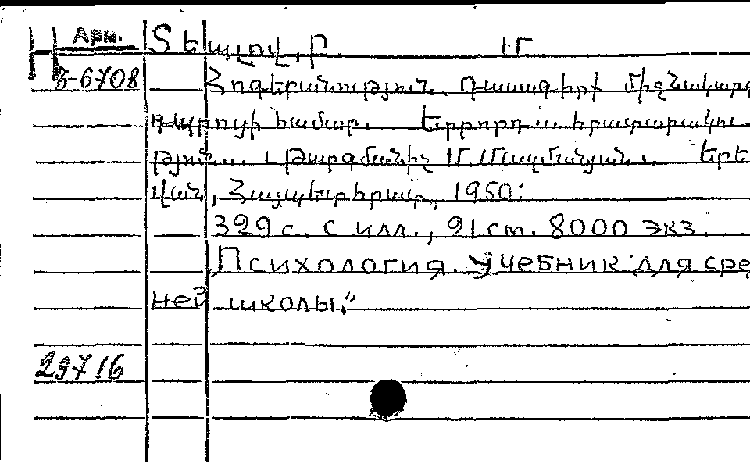 Арм. Տեպլով, Բ. Մ
Н Б-6708 Հոգեբանություն. Դասագիրք միջնակարգ
դպրոցի համար. Երրորդ հրատարակու
թյուն. Թարգմանիչ Մ. Մազմանյան. Երե
վան, Հայպետհրատ, 1950:
329 с. с илл., 21 см. 8000 экз.
„Психология. Учебник для сред
ней школы."
29716